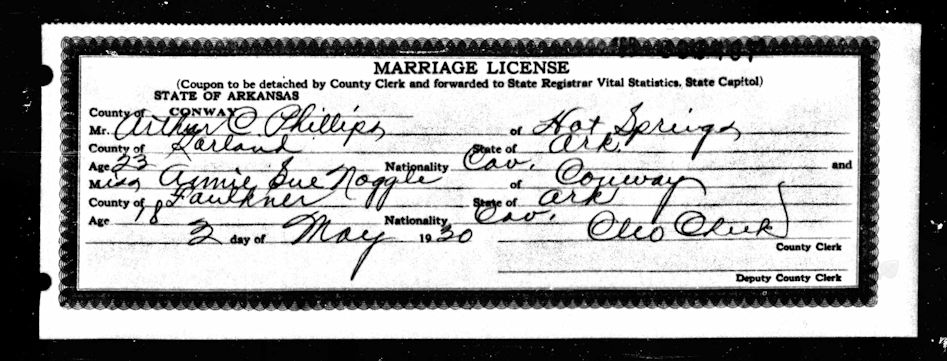 MARRIAGE LICENSE
(Coupon to be detached by County Clerk and forwarded to State Registrar Vital Statistics, State Capitol)
STATE OF ARKANSAS
County of CONWAY
Mr. Arthur C Phillips of Hot Springs
County of Garland State of Ark.
Age 23 Nationality Cau. and
Miss Annie Sue Noggle of Conway
County of Faulkner State of Ark
Age 18 Nationality Cau.
2 day of May 1930 Cleo Cheek
County Clerk
Deputy County Clerk